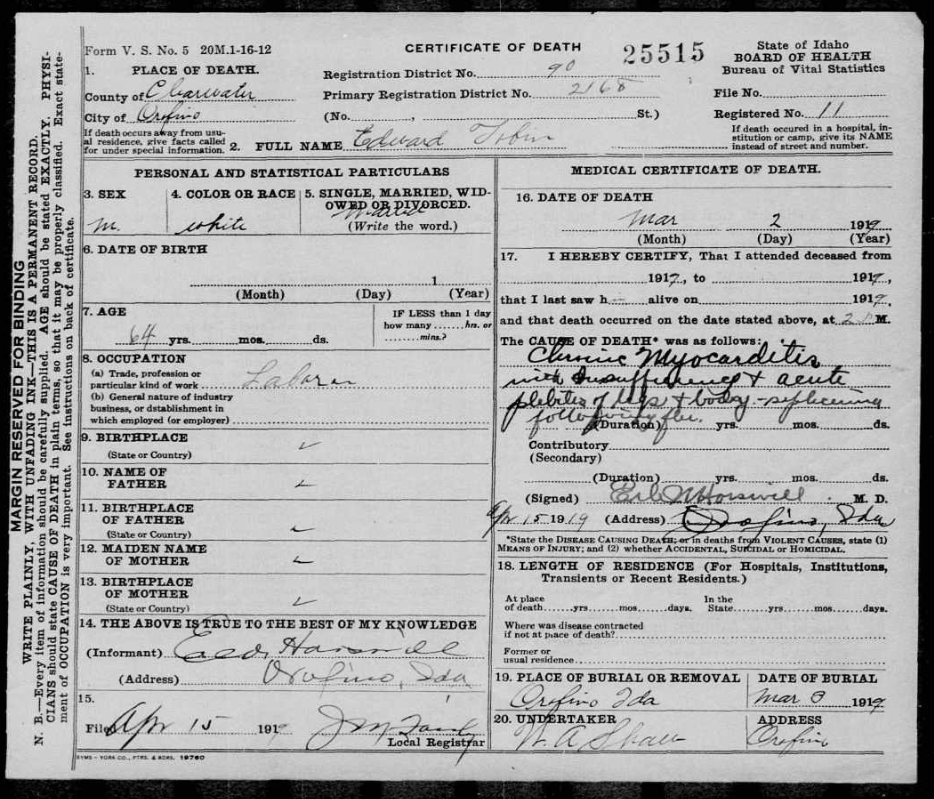 MARGIN RESERVED FOR BINDING
WRITE PLAINLY, WITH UNFADING INK—THIS IS A PERMANENT RECORD.
N. B.—Every item of information should be carefully supplied. AGE should be stated EXACTLY. PHYSI-
CIANS should state CAUSE OF DEATH in plain terms, so that it may be properly classified. Exact state-
ment of OCCUPATION is very important. See instructions on back of certificate.
Form V. S. No. 5 20M.1-16-12
CERTIFICATE OF DEATH
25515
State of Idaho
BOARD OF HEALTH
Bureau of Vital Statistics
1. PLACE OF DEATH.
County of Clearwater
City of Orofino
If death occurs away from usu-
al residence, give facts called
for under special information.
Registration District No. 90
Primary Registration District No. 2168
(No. , St.)
File No.
Registered No. 11
If death occured in a hospital, in-
stitution or camp, give its NAME
instead of street and number.
2. FULL NAME Edward Tobin
PERSONAL AND STATISTICAL PARTICULARS
3. SEX
m.
4. COLOR OR RACE
white
5. SINGLE, MARRIED, WID-
OWED OR DIVORCED.
Married
(Write the word.)
6. DATE OF BIRTH
1
(Month) (Day) (Year)
7. AGE
64 yrs. mos. ds.
IF LESS than 1 day
how many ....... hrs. or
....... mins.?
8. OCCUPATION
(a) Trade, profession or
particular kind of work Laborer
(b) General nature of industry
business, or dstablishment in
which employed (or employer)
9. BIRTHPLACE
(State or Country)
10. NAME OF
FATHER
11. BIRTHPLACE
OF FATHER
(State or Country)
12. MAIDEN NAME
OF MOTHER
13. BIRTHPLACE
OF MOTHER
(State or Country)
14. THE ABOVE IS TRUE TO THE BEST OF MY KNOWLEDGE
(Informant) Horswill
(Address) Orofino, Ida
15.
Filed Apr 15 1919
Local Registrar
SYMS-YORK CO., PTRS. & BDRS. 19760
MEDICAL CERTIFICATE OF DEATH.
16. DATE OF DEATH
Mar 2 1919
(Month) (Day) (Year)
17. I HEREBY CERTIFY, That I attended deceased from
191 , to 191 ,
that I last saw h alive on 191 ,
and that death occurred on the date stated above, at 2 M.
The CAUSE OF DEATH* was as follows:
Chronic Myocarditis
with Insufficiency & acute
plebites of legs & body -
following flu.
(Duration) yrs. mos. ds.
Contributory
(Secondary)
(Duration) yrs. mos. ds.
(Signed) Horswill M. D.
Apr 15 1919 (Address) Orofino, Ida
*State the DISEASE CAUSING DEATH; or in deaths from VIOLENT CAUSES, state (1)
MEANS OF INJURY; and (2) whether ACCIDENTAL, SUICIDAL or HOMICIDAL.
18. LENGTH OF RESIDENCE (For Hospitals, Institutions,
Transients or Recent Residents.)
At place
of death.....yrs.....mos.....days.
In the
State.....yrs.....mos.....days.
Where was disease contracted
if not at place of death?
Former or
usual residence
19. PLACE OF BURIAL OR REMOVAL
Orofino Ida
DATE OF BURIAL
Mar 3 1919
20. UNDERTAKER
W. A. Shaw
ADDRESS
Orofino